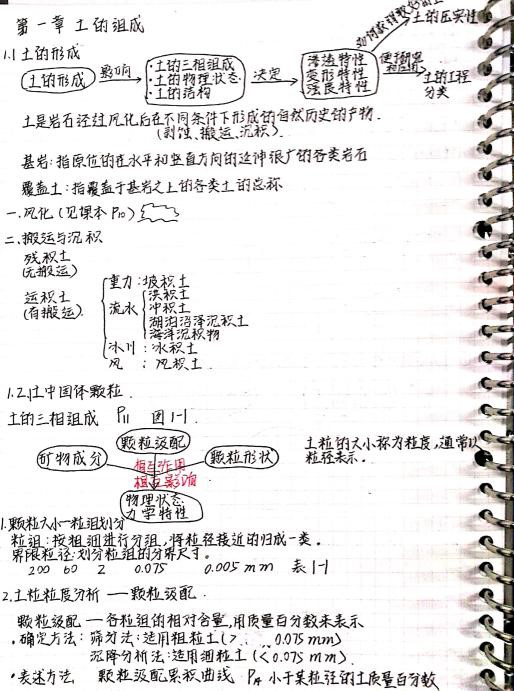 第一章 土的组成
1.1 土的形成
土的形成 影响 ·土的三相组成 ·土的物理状态 ·土的结构 决定 渗透特性 变形特性 强度特性 土的压实性
土的工程分类
土是岩石经过风化后在不同条件下形成的自然历史的产物.
(剥蚀、搬运、沉积).
基岩:指原位的在水平和竖直方向的延伸很广的各类岩石
覆盖土:指覆盖于基岩之上的各类土的总称
一.风化(见课本 P10)
二.搬运与沉积
残积土
(无搬运)
运积土
(有搬运)
重力:坡积土
流水 洪积土
冲积土
湖泊沼泽沉积土
海洋沉积物
冰川:冰积土
风:风积土.
1.2 土中固体颗粒.
土的三相组成 P11 图1-1.
颗粒级配
矿物成分 颗粒形状
相互作用
相互影响
物理状态
力学特性
土粒的大小称为粒度,通常以
粒径表示.
1.颗粒大小—粒组划分
粒组:按粗细进行分组,将粒径接近的归成一类.
界限粒径:划分粒组的分界尺寸.
200 60 2 0.075 0.005 mm 表1-1
2.土粒粒度分析——颗粒级配.
颗粒级配—各粒组的相对含量,用质量百分数来表示
·确定方法:筛分法:适用粗粒土(> 0.075 mm)
沉降分析法:适用细粒土(<0.075 mm).
·表述方法 颗粒级配累积曲线. 小于某粒径的土质量百分数